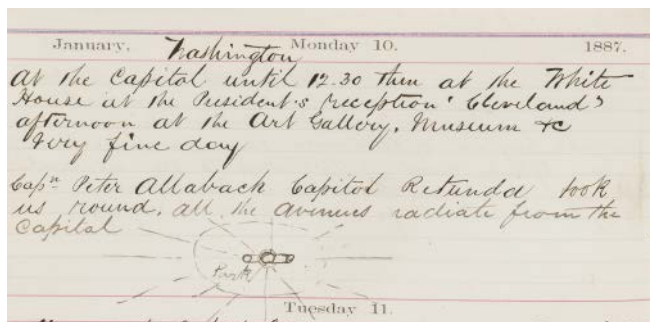 January. Washington Monday 10. 1887.
At the Capitol until 12.30 then at the White
House at the President's reception "Cleveland"
afternoon at the Art Gallery, Museum &c
Very fine day
Capn Peter Allaback Capitol Rotunda took
us round. all the avenues radiate from the
Capital
Park
Tuesday 11.